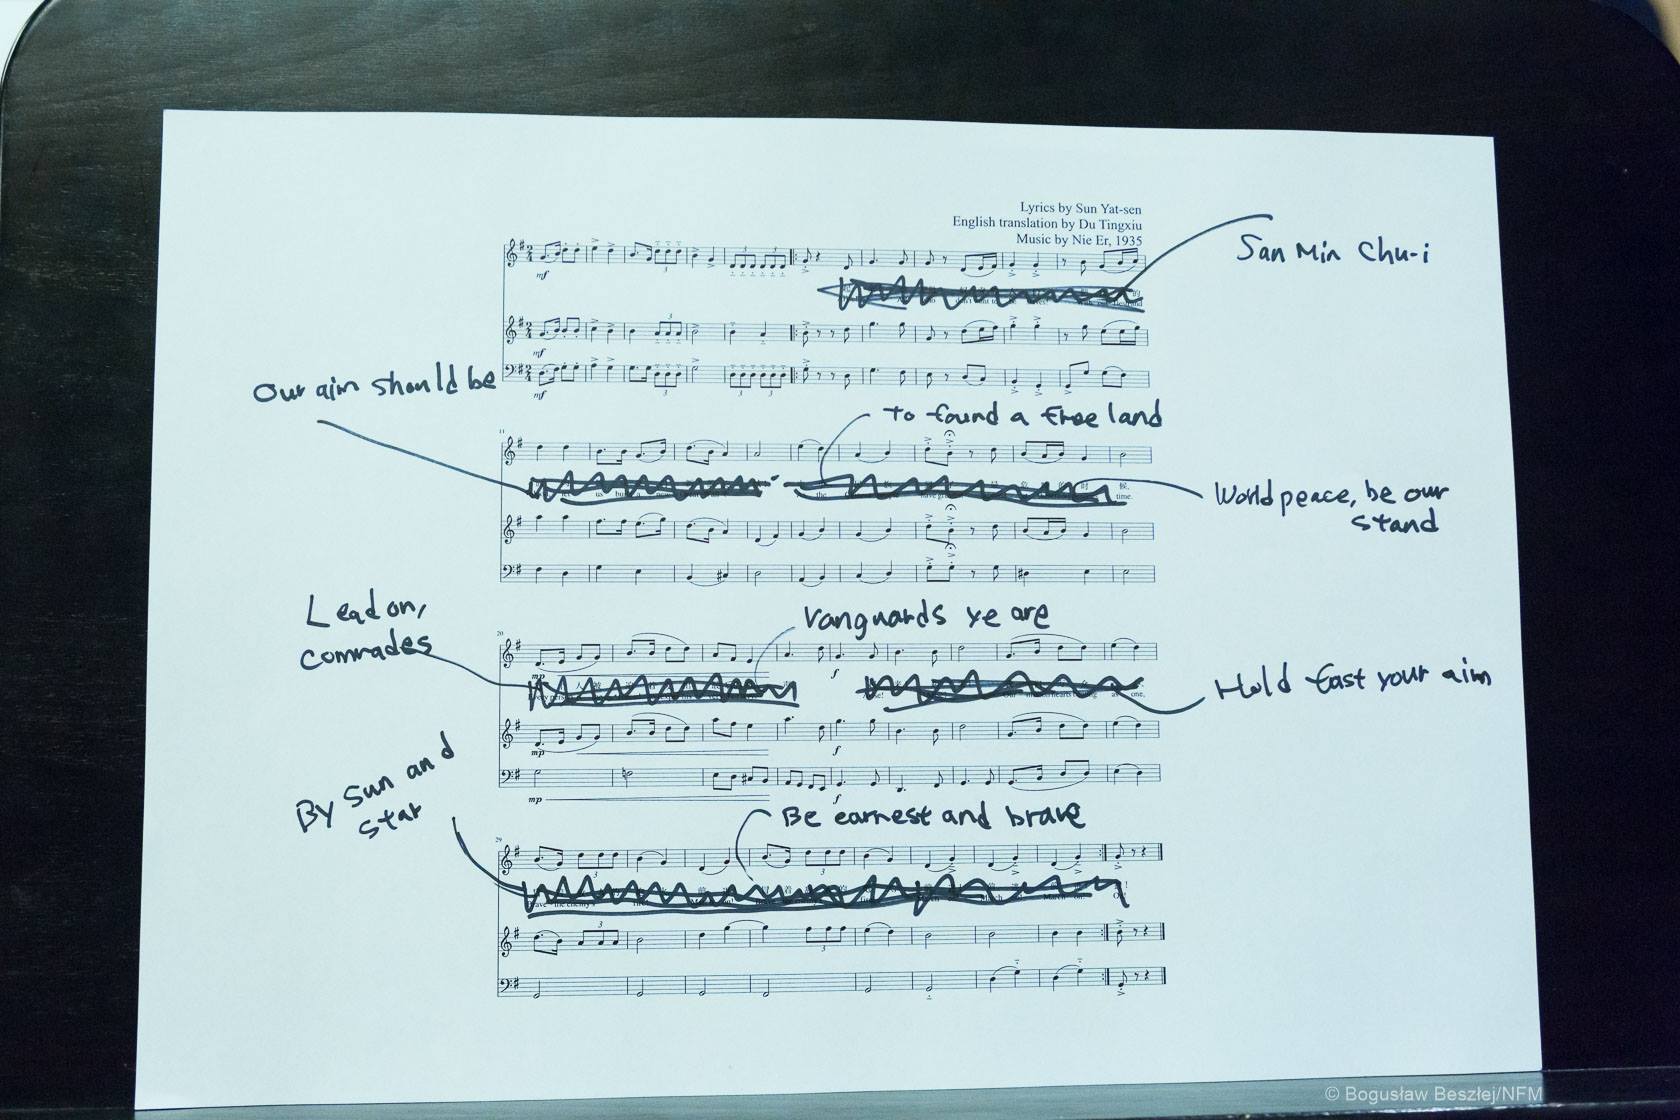 Lyrics by Sun Yat-sen
English translation by Du Tingxiu
Music by Nie Er, 1935
San Min Chu-i
mf
3
3
3
的
mf
3
mf
3
3
3
Our aim should be
To found a free land
11
us
the
时 候,
time.
World peace, be our
stand
Lead on,
comrades
Vanguards ye are
20
mp
f
one,
Hold fast your aim
mp
f
mp
f
By Sun and
star
Be earnest and brave
29
3
3
3
3
© Bogusław Beszłej/NFM